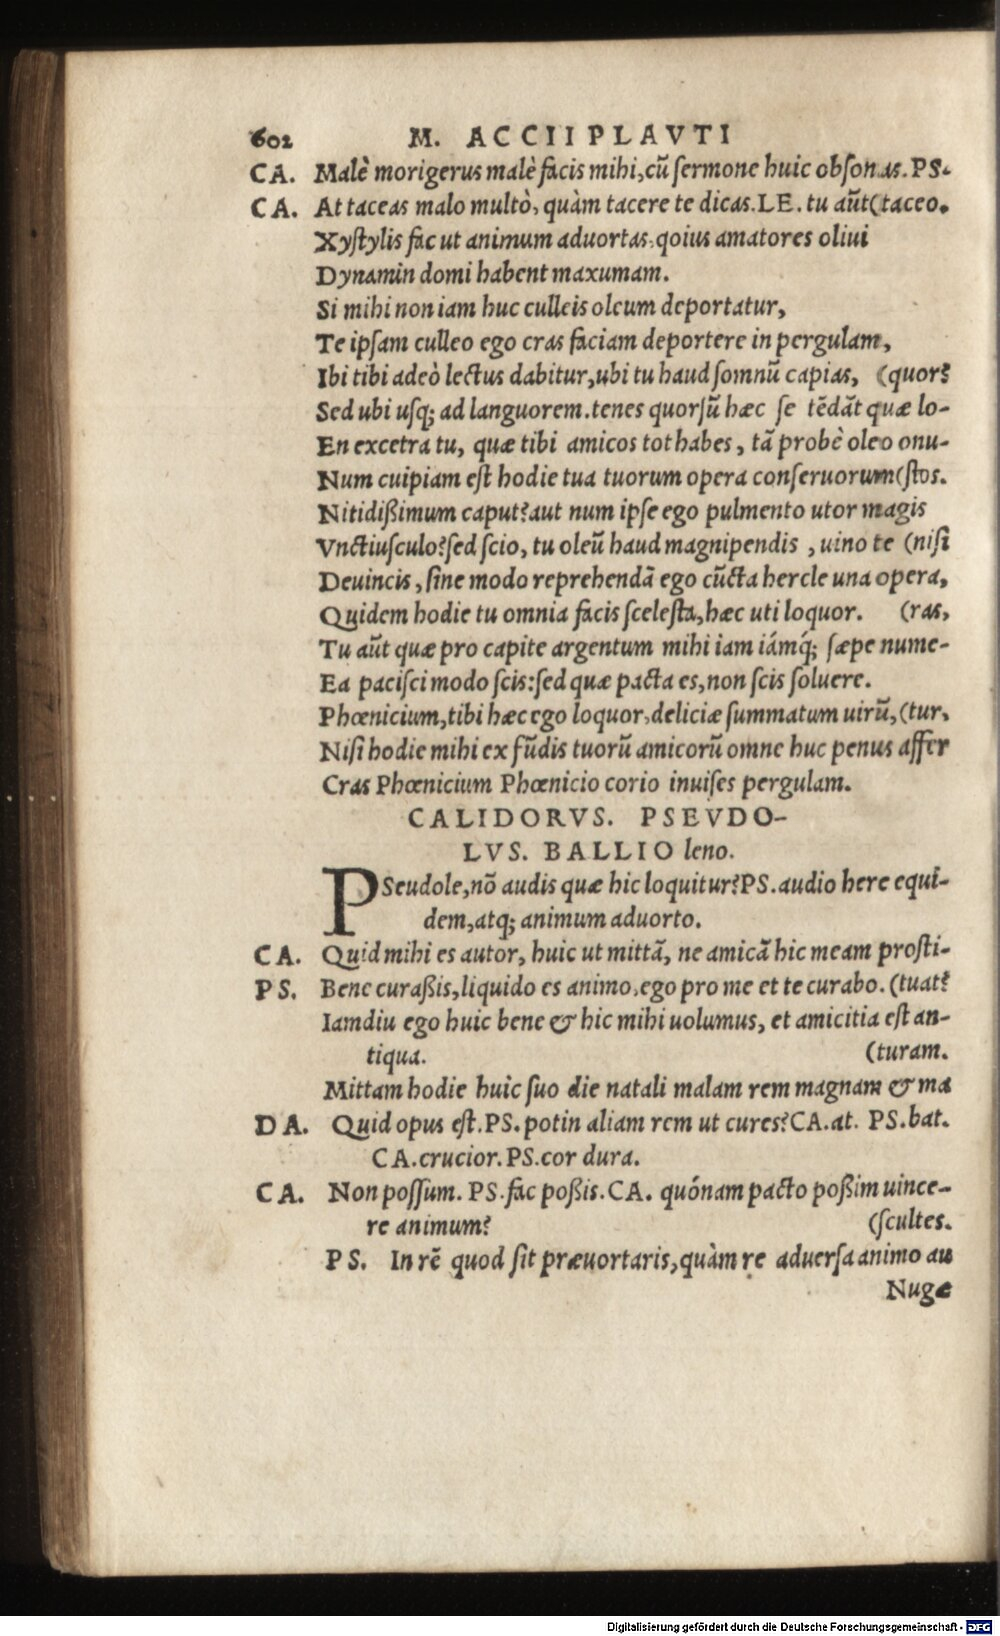 602 M. ACCII PLAVTI
CA. Malè morigerus malè facis mihi,cũ ſermone huic obſonas.PS.
CA. At taceas malo multò, quàm tacere te dicas.LE. tu aũt(taceo.
Xyſtylis fac ut animum aduortas,qoius amatores oliui
Dynamin domi habent maxumam.
Si mihi non iam huc culleis oleum deportatur,
Te ipſam culleo ego cras faciam deportere in pergulam,
Ibi tibi adeò lectus dabitur,ubi tu haud ſomnũ capias, (quor?
Sed ubi uſq; ad languorem.tenes quorſũ hæc ſe tẽdãt quæ lo-
En excetra tu, quæ tibi amicos tot habes, tã probè oleo onu-
Num cuipiam eſt hodie tua tuorum opera conſeruorum(ſtos.
Nitidißimum caput?aut num ipſe ego pulmento utor magis
Vnctiuſculo?ſed ſcio, tu oleũ haud magnipendis , uino te (niſi
Deuincis, ſine modo reprehendã ego cũcta hercle una opera,
Quidem hodie tu omnia facis ſceleſta,hæc uti loquor. (ras,
Tu aũt quæ pro capite argentum mihi iam iámq́; ſæpe nume-
Ea paciſci modo ſcis:ſed quæ pacta es,non ſcis ſoluere.
Phœnicium,tibi hæc ego loquor,deliciæ ſummatum uirũ,(tur,
Niſi hodie mihi ex fũdis tuorũ amicorũ omne huc penus affer
Cras Phœnicium Phœnicio corio inuiſes pergulam.
CALIDORVS. PSEVDO-
LVS. BALLIO leno.
PSeudole,nõ audis quæ hic loquitur?PS.audio here equi-
dem,atq; animum aduorto.
CA. Quid mihi es autor, huic ut mittã, ne amicã hic meam proſti-
PS. Bene curaßis,liquido es animo.ego pro me et te curabo.(tuat?
Iamdiu ego huic bene & hic mihi uolumus, et amicitia eſt an-
tiqua. (turam.
Mittam hodie huic ſuo die natali malam rem magnam & ma
DA. Quid opus eſt.PS.potin aliam rem ut cures?CA.at. PS.bat.
CA.crucior.PS.cor dura.
CA. Non poſſum. PS.fac poßis.CA. quónam pacto poßim uince-
re animum? (ſcultes.
PS. In rẽ quod ſit præuortaris,quàm re aduerſa animo au
Nugæ
Digitalisierung gefördert durch die Deutsche Forschungsgemeinschaft - DFG